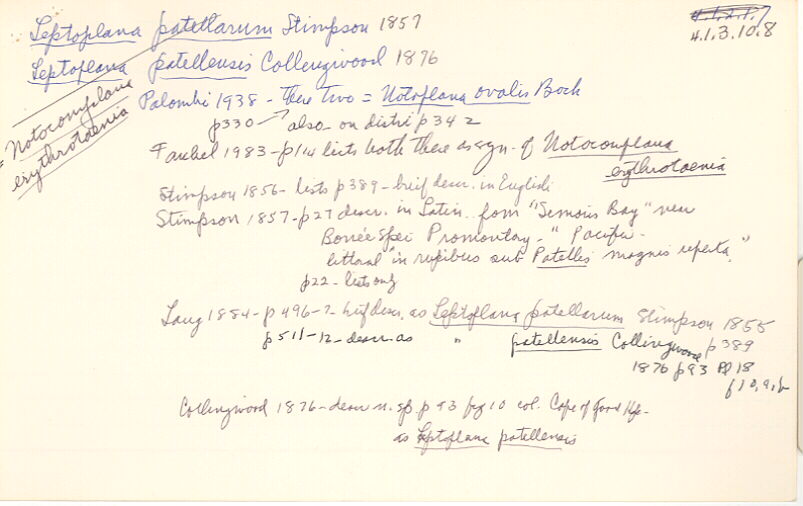 Leptoplana patellarum Stimpson 1857
4.1.2.1.7
4.1.3.10.8
Leptoplana patellensis Collingwood 1876
= Notocomplana erythrotaenia
Palombi 1938 - these two = Notoplana ovalis Bock
p330 → also on distri p342
Faubel 1983 - p114 lists both these as syn. of Notocomplana
erythrotaenia
Stimpson 1856 - lists p389 - brief descr. in English
Stimpson 1857 - p27 descr. in Latin from "Simons Bay" near
Bonée Spei Promontory - " Pacific
littoral "in rupibus sub Patellis magnis reperta."
p22 - lists only
Lang 1884 - p496-7 brief descr. as Leptoplana patellarum Stimpson 1855
p389
p511-12 - descr. as " patellensis Collingwood
1876 p93 Pl 18
f 10, a, b
Collingwood 1876 - descr n. sp. p93 fig 10 col. Cape of Good Hope -
as Leptoplana patellensis